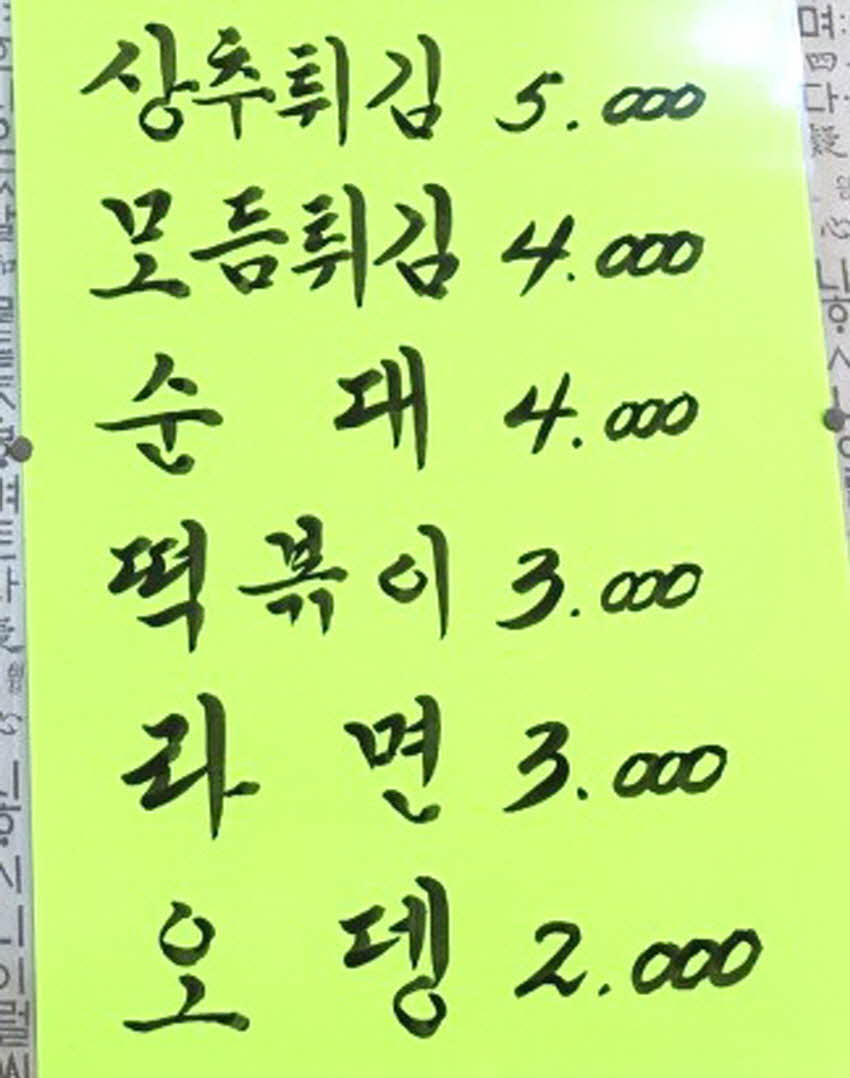 상추튀김 5.000
모듬튀김 4.000
순대 4.000
떡볶이 3.000
라면 3.000
오뎅 2.000